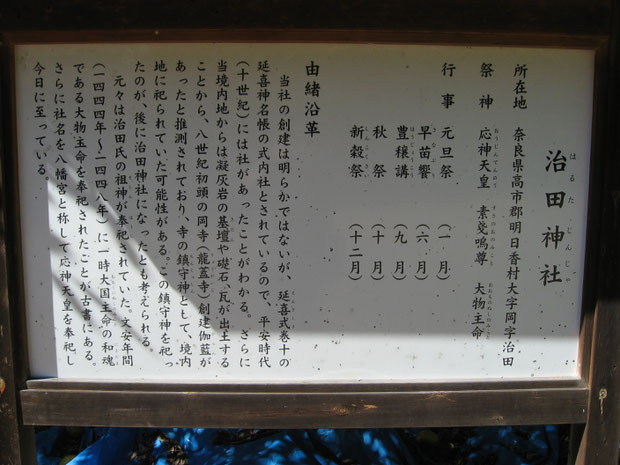 治田神社
はるたじんじゃ
所在地 奈良県高市郡明日香村大字岡字治田
祭神 応神天皇 素戔嗚尊 大物主命
行事 元旦祭 (一月)
早苗饗 (六月)
豊穣講 (九月)
秋祭 (十月)
新穀祭 (十二月)
由緒沿革
当社の創建は明らかではないが、延喜式巻十の
延喜神名帳の式内社とされているので、平安時代
(十世紀)には社があったことがわかる。さらに
当境内地からは凝灰岩の基壇や礎石、瓦が出土する
ことから、八世紀初頭の岡寺(龍蓋寺)創建伽藍が
あったと推測されており、寺の鎮守神として、境内
地に祀られていた可能性がある。この鎮守神を祀っ
たのが、後に治田神社になったとも考えられる。
元々は治田氏の祖神が奉祀されていた。文安年間
(一四四四年~一四四八年)に一時大国主命の和魂
である大物主命を奉祀されたことが古書にある。
さらに社名を八幡宮と称して応神天皇を奉祀し
今日に至っている。